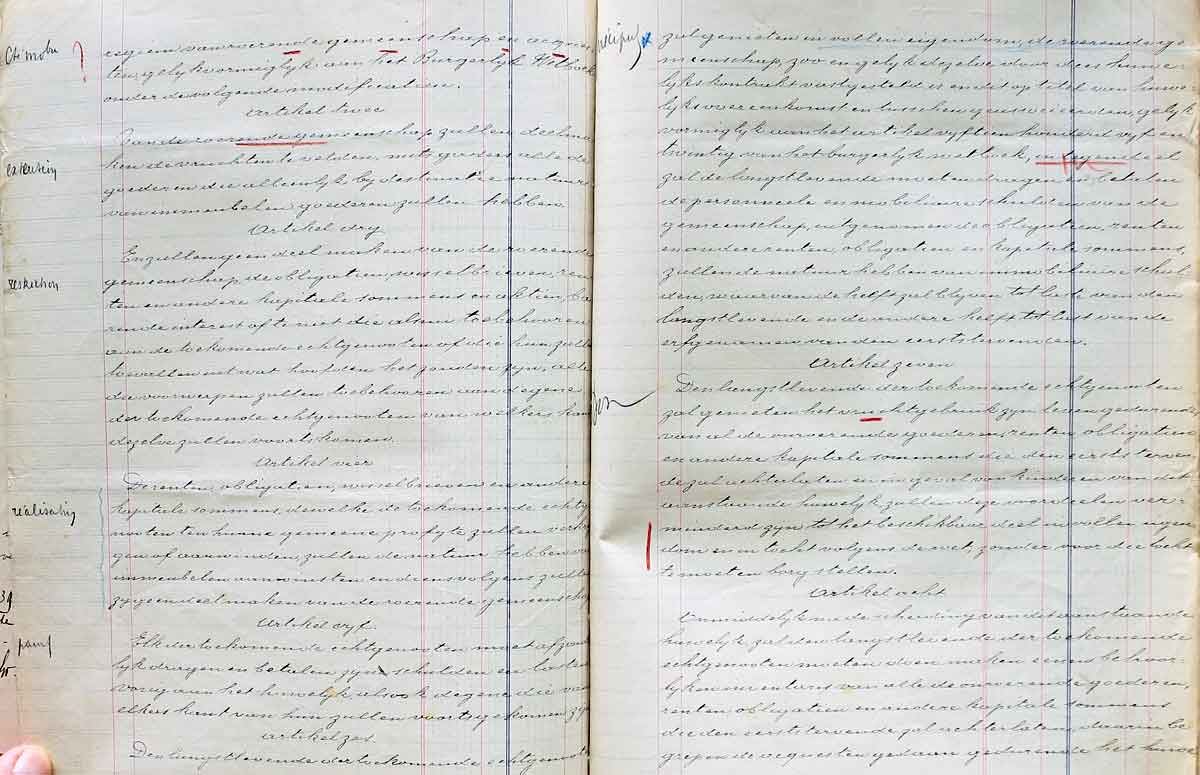 een van roerende gemeenschap en acques
ten, gelykvormiglyk aan het Burgerlyk Wetboek
onder de volgende modificatien.
Artikel twee
Van de roerende gemeenschap zullen deelma
ken de vruchten te velden, mitsgaders alle de
goederen die alleenlyk by destinatie natuur
van immeubelen goederen zullen hebben
Artikel dry
En zullen geen deel maken van de roerende
gemeenschap, de obligatien, wisselbrieven, ren
ten en andere kapitale sommen en aktien, ba
rende interest ofte niet die alsnu toebehooren
aan de toekomende echtgenooten of die hun zulle
te vallen uit wat hoofde het zoude zyn, alle
die voorwerpen zullen toebehooren aan degene
der toekomende echtgenooten van wilkers kan
dezelve zullen voortskomen.
Artikel vier
De renten, obligatien, wisselbrieven en andere
kapitale sommen, dewelke de toekomende echtg
nooten ten hunne gemeene profyte zullen verkr
gen of aanwinden, zullen de natuur hebben va
immeubelen aanwinsten en diensvolgens zulle
zy geen deel maken van de roerende gemeensch
Artikel vyf
Elk der toekomende echtgenooten moet afzond
lyk dragen en betalen zyne schulden en lasten
vorig aan het huwelyk alsook degene die van
elkers kant van hun zullen voortsgekomen zy
Artikel zes
Den langstlevende der toekomende echtgenoote
realisatie
zal genieten in vollen eigendom, de roerende ge
meenschap, zoo en gelyk dezelve door dees huwe
lyks kontrakt vastgesteld is en det op titel van huwe
lyksovereenkomst en tusschen geassocieerden, gelyk
vormiglyk aan het artikel vyftien honderd vyf en
twintig van het burgerlyk wetboek, in tegendeel
zal de langstlevende moeten dragen en betalen
de personneele en mobiliaire schulden van de
gemeenschap, uitgenomen de obligatien, renten
en andere renten, obligatien en kapitale sommen,
zullende natuur hebben van immobiliaire schul
den, waarvan de helft zal blyven tot laste van den
langstlevende en de andere helft tot last van de
erfgenamen van den eerststervenden.
Artikel zeven
Den langstlevende der toekomende echtgenooten
zal genieten het vruchtgebruik zyn leven gedurende
van al de onroerende goederen, renten obligatien
en andere kapitale sommen die den eerststerven
de zal achterlaten en in geval van kinderen van det
aanstaande huwelyk zullen dige voordeelen ver-
minderd zyn tot het beschikbaar deel in vollen eigen
dom en in tocht volgens de wet, zonder voor die tocht
te moeten borg stellen.
Artikel acht
Onmiddelyk na de scheiding van det aanstaande
huwelyk zal den langstlevende der toekomende
echtgenooten moeten doen maken eenen behoor-
lyken inventaris van alle de onroerende goederen,
renten obligatien en andere kapitale sommen
die den eerststervende zal achterlaten, daarin be
grepen de aquesten gedaan gedurende het huwe